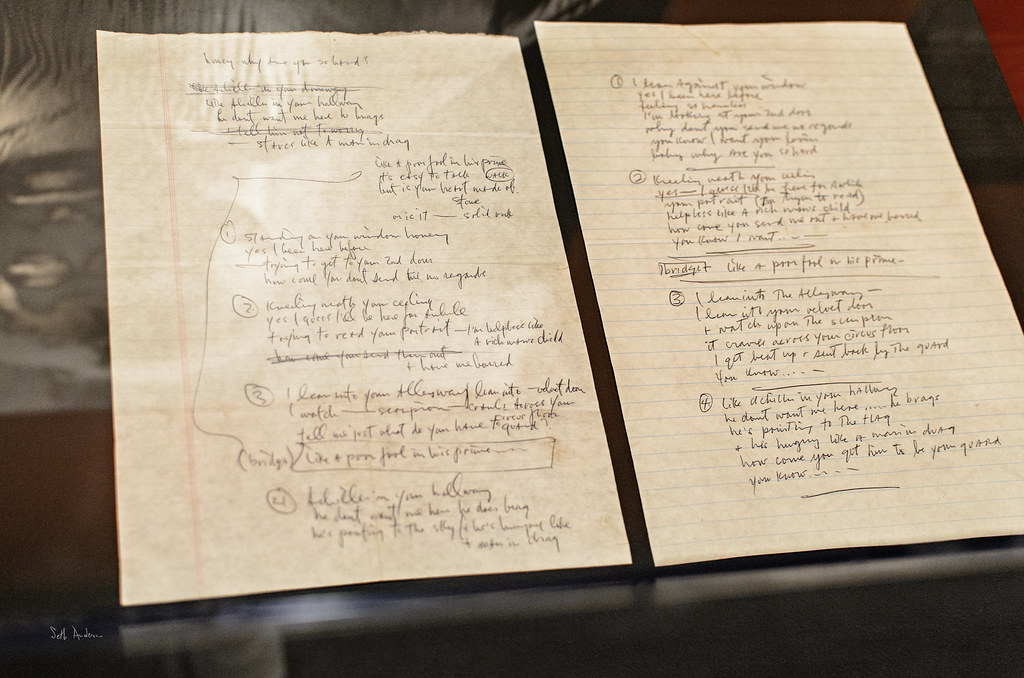 honey why are you so hard?
Achilles in your doorway
like Achilles in your hallway
he dont want me here he brags
I tell him not to worry
stares like A man in drag
like A poor fool in his prime
it's easy to talk TALK
but is your heart made of
stone
or is it — solid rock
① standing on your window honey
yes I been here before
trying to get to your 2nd door
how come you don't send me no regards
② Kneeling neath your ceiling
yes I guess I'll be here for Awhile
trying to read your portrait — I'm helpless like
A rich mans child
how come you send them out
+ have me barred
③ I lean into your Alleyway lean into — velvet door
I watch — scorpion — crawls Across your
circus floor
tell me just what do you have to guard?
(bridge) like A poor fool in his prime
④ Achilles in your hallway
he dont want me here he does brag
he's pointing to the sky + he's hungry like
A man in drag
① I lean Against your window
yes I been here before
feeling so harmless
I'm looking at your 2nd door
why don't you send me no regards
you know I want your lovin
honey why Are you so hard
② Kneeling neath your ceiling
yes — I guess I'll be here for Awhile
your portrait (I'm tryin to read)
helpless like A rich mans child
how come you send me out + have me barred
you know I want . . —
bridge like A poor fool in his prime —
③ I lean into The Alleyway —
I lean into your velvet door
+ watch upon The scorpion
it crawls across your circus floor
I get beat up + sent back by The guard
you know . . . . —
④ like Achilles in your hallway
he dont want me here . . . . he brags
he's pointing to The flag
+ he's hungry like A man in drag
how come you get him to be your guard
you know . . . . —
Seth Anderson